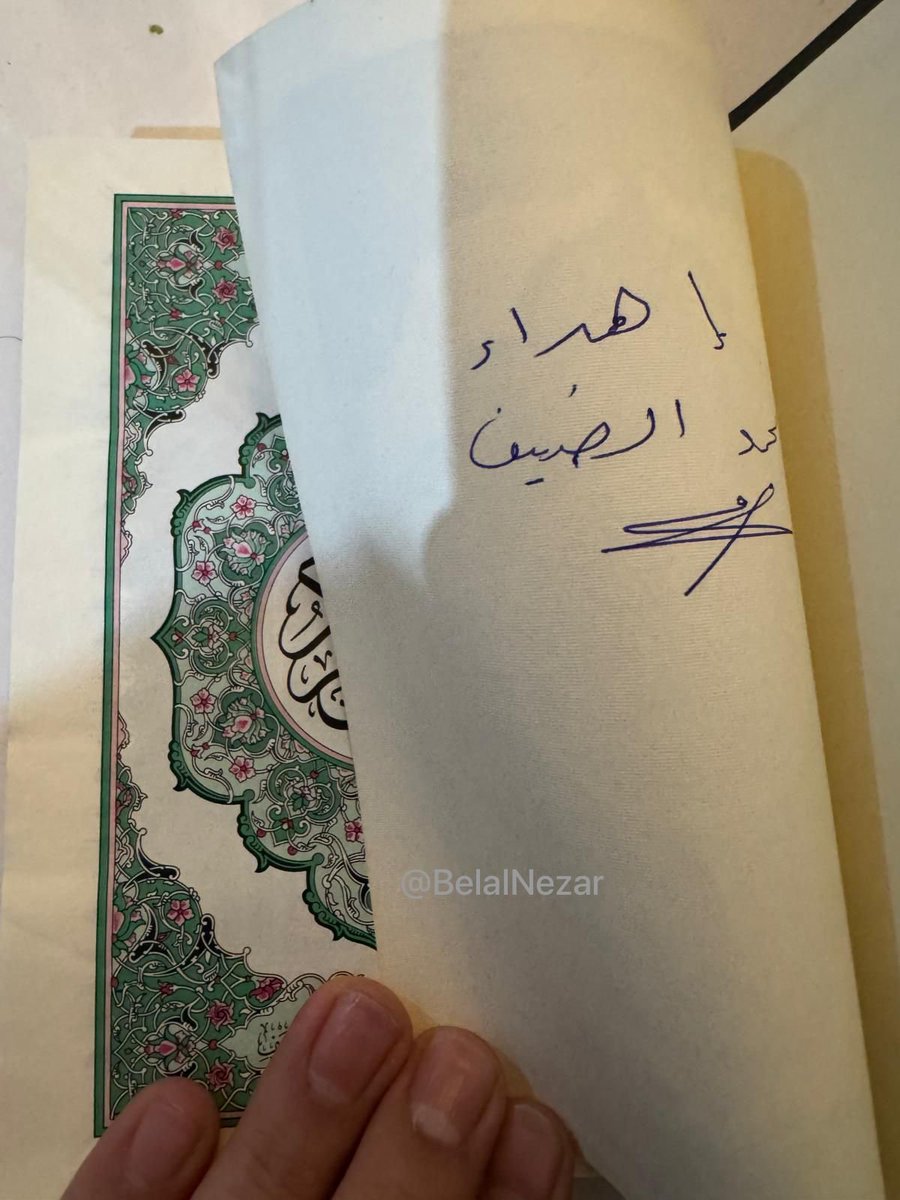 إهداء
محمد الضيف
@BelalNezar